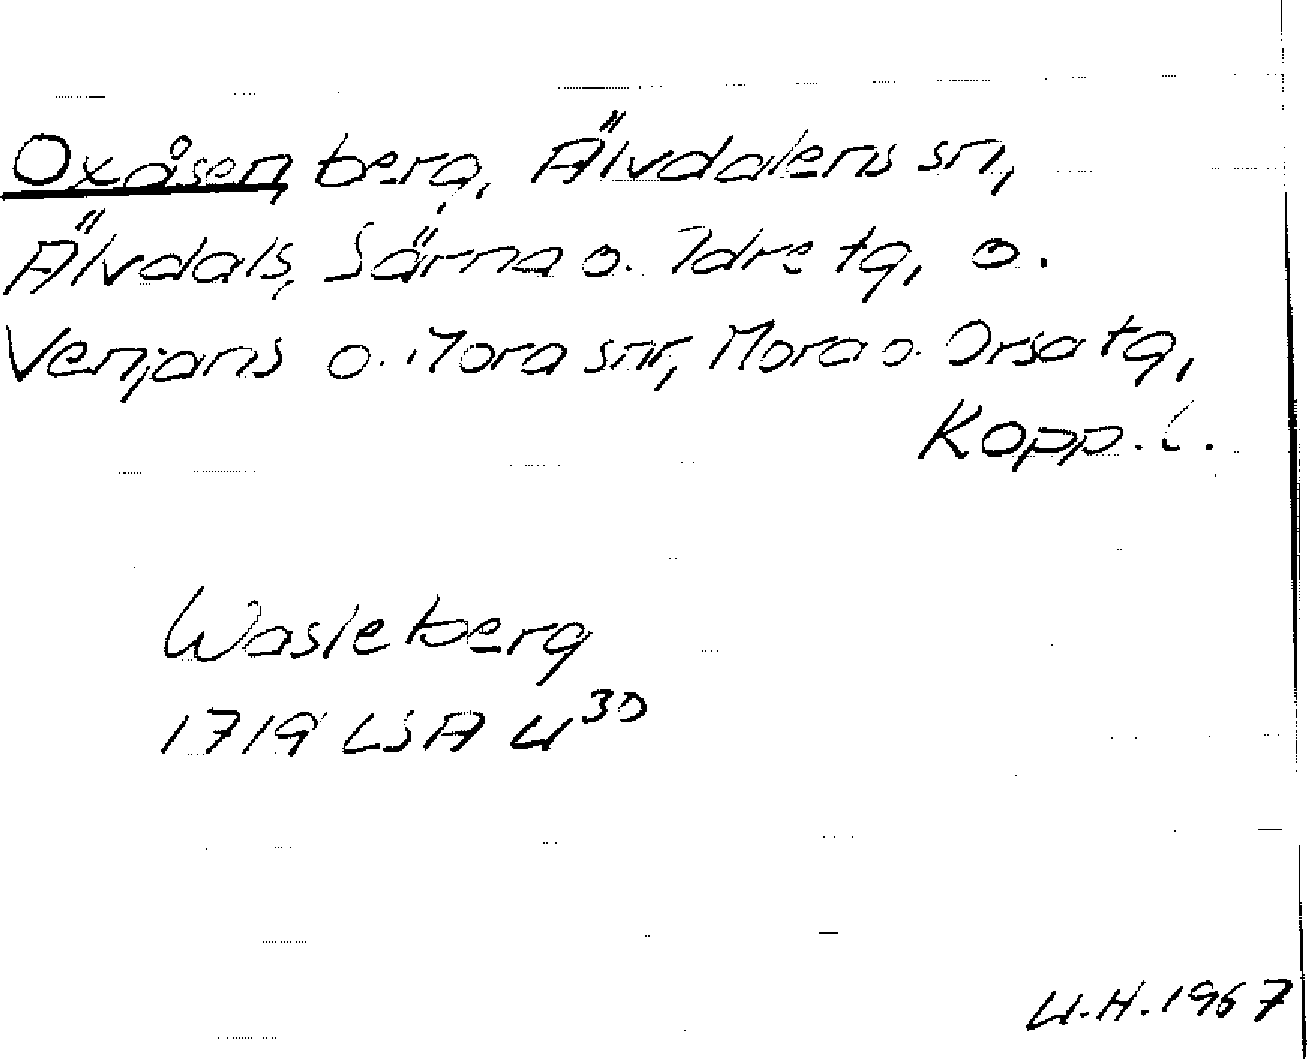 Oxåsen, berg, Älvdalens sn,
Älvdals, Särna o. Idre tg, o.
Venjans o. Mora snr, Mora o. Orsa tg,
Kopp. l.
Wasleberg
1719 LSA U³⁰
U.H. 1967